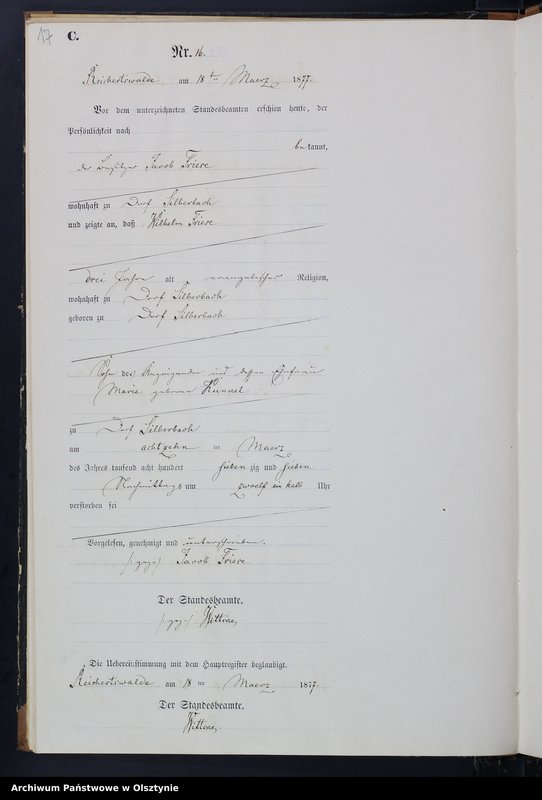 17
C.
Nr. 16.
Reichertswalde am 18 ten Maerz 1877.
Vor dem unterzeichneten Standesbeamten erschien heute, der
Persönlichkeit nach
bekannt,
der Besitzer Jacob Friese
wohnhaft zu Dorf Silberbach
und zeigte an, daß Wilhelm Friese
drei Jahre alt evangelischer Religion,
wohnhaft zu Dorf Silberbach
geboren zu Dorf Silberbach
Sohn des Anzeigenden und dessen Ehefrau
Marie geborene
zu Dorf Silberbach
am achtzehn ten Maerz
des Jahres tausend acht hundert sieben zig und sieben
Nachmittags um zwoelf ein halb Uhr
verstorben sei
Vorgelesen, genehmigt und unterschrieben.
Jacob Friese
Der Standesbeamte.
Die Uebereinstimmung mit dem Hauptregister beglaubigt.
Reichertswalde am 18 ten Maerz 1877.
Der Standesbeamte.
Archiwum Państwowe w Olsztynie